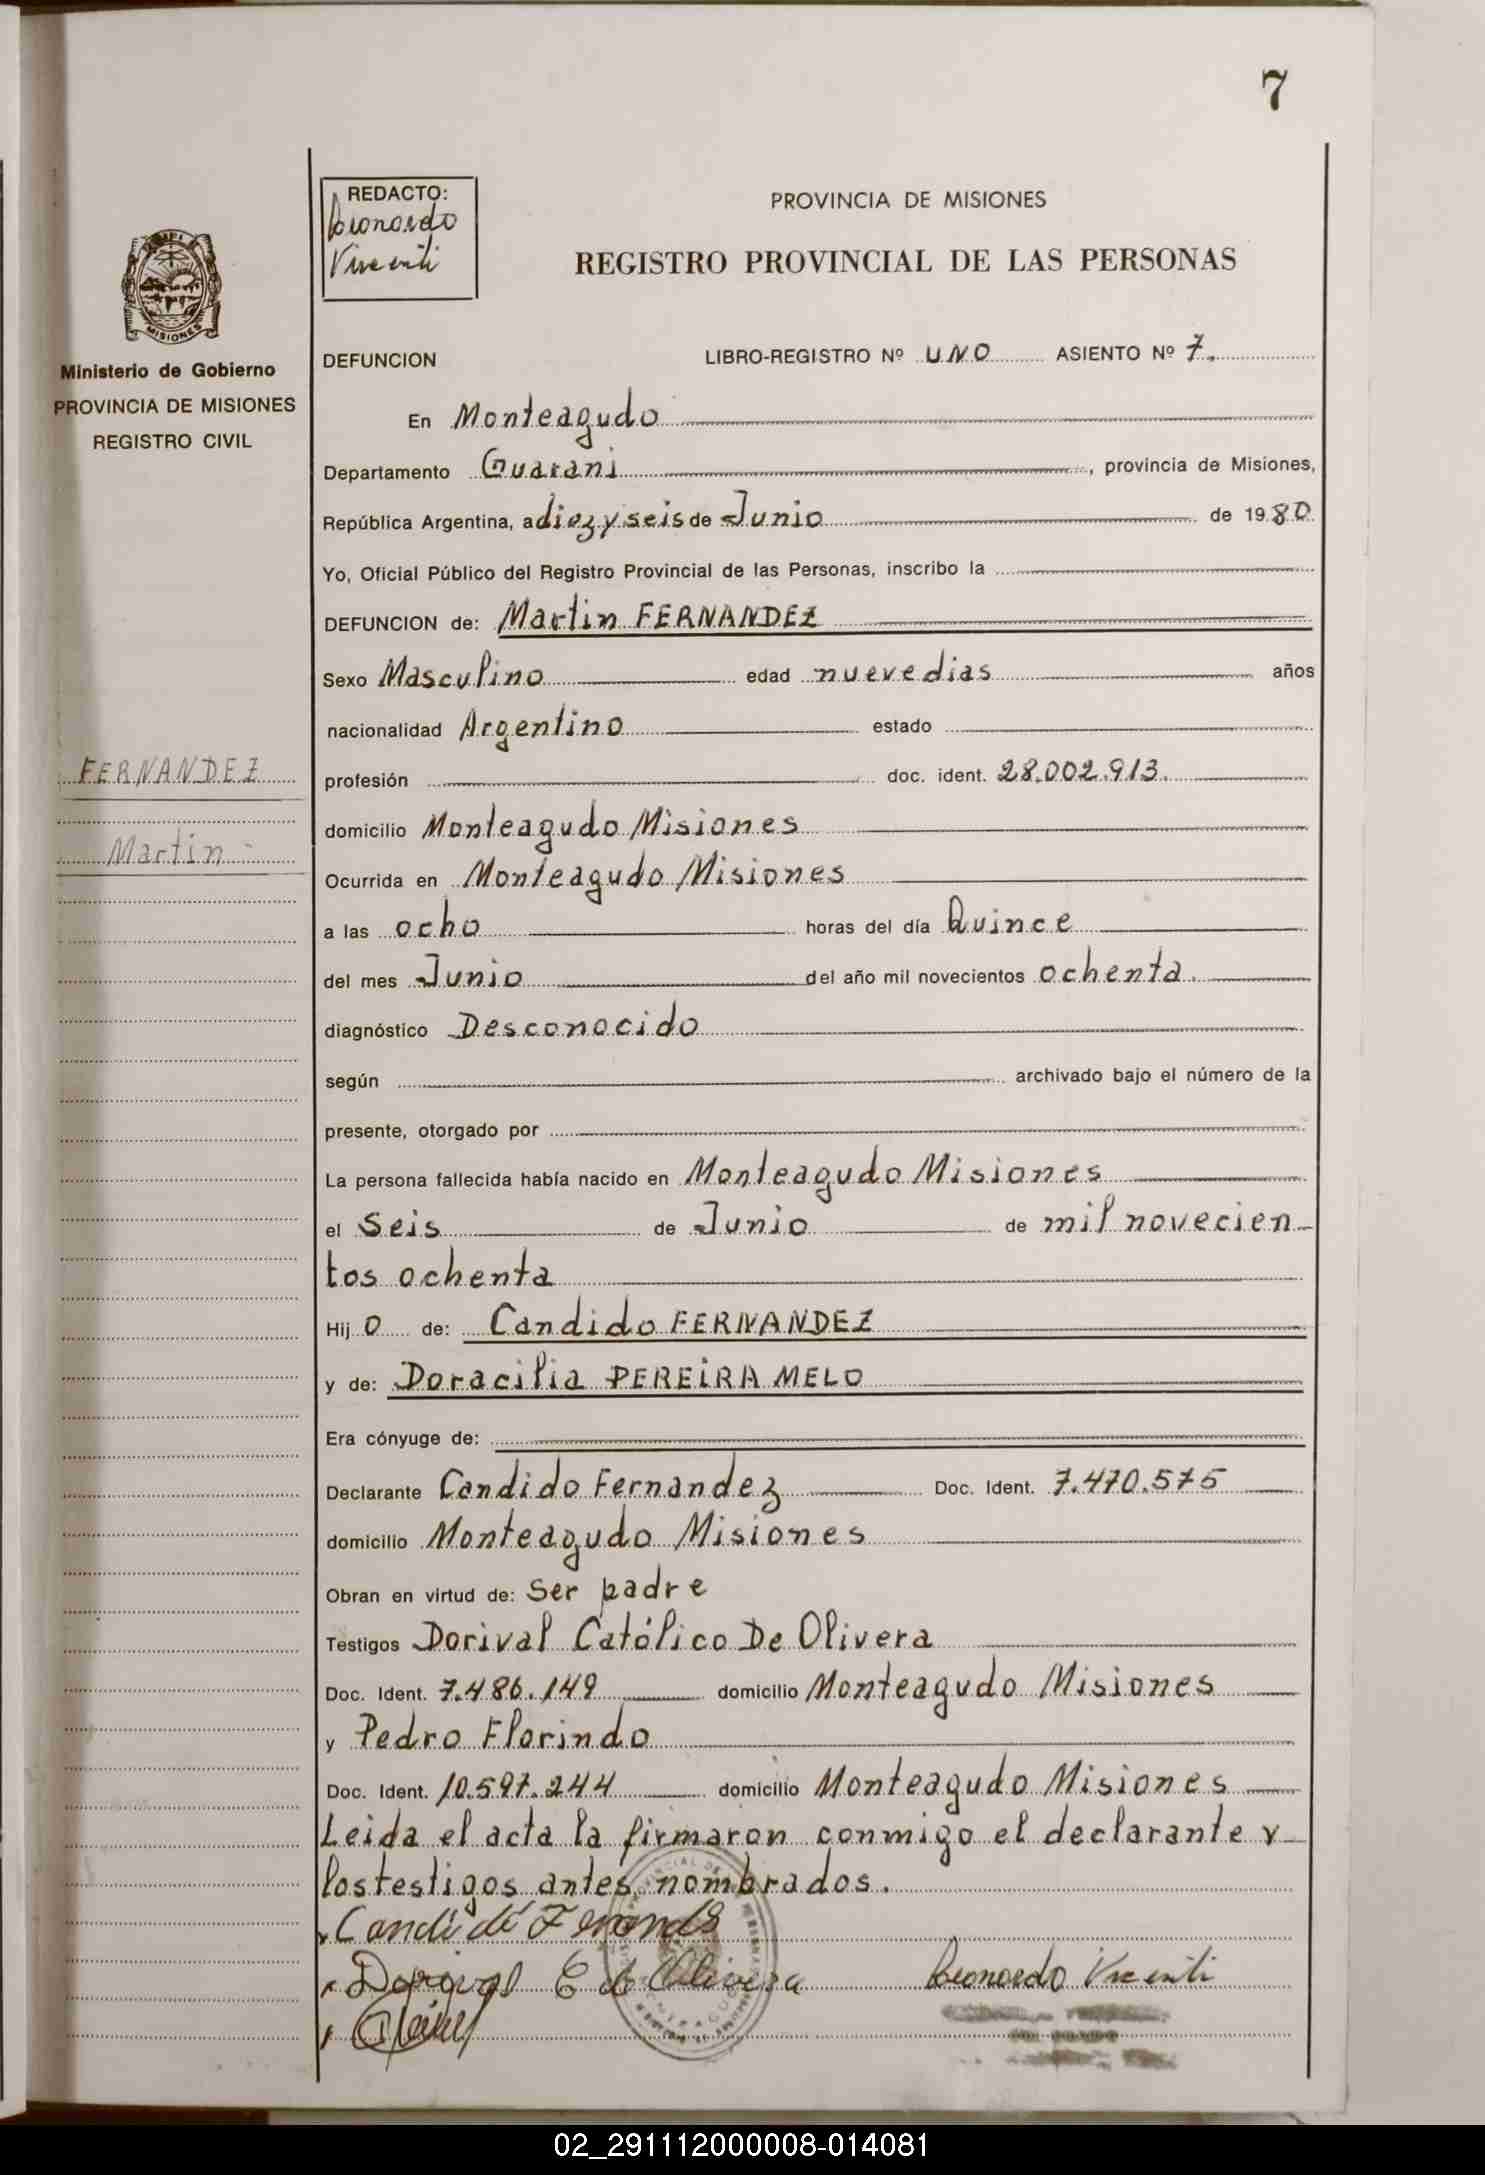 7
REDACTO:
Leonardo
Vicenti
PROVINCIA DE MISIONES
REGISTRO PROVINCIAL DE LAS PERSONAS
MISIONES
Ministerio de Gobierno
PROVINCIA DE MISIONES
REGISTRO CIVIL
DEFUNCION LIBRO-REGISTRO Nº UNO ASIENTO Nº 7.
En Monteagudo
Departamento Guarani, provincia de Misiones,
República Argentina, a diez y seis de Junio de 1980
Yo, Oficial Público del Registro Provincial de las Personas, inscribo la
DEFUNCION de: Martin FERNANDEZ
Sexo Masculino edad nueve dias años
nacionalidad Argentino estado
FERNANDEZ
profesión doc. ident. 28.002.913.
domicilio Monteagudo Misiones
Martin
Ocurrida en Monteagudo Misiones
a las ocho horas del día Quince
del mes Junio del año mil novecientos ochenta.
diagnóstico Desconocido
según archivado bajo el número de la
presente, otorgado por
La persona fallecida había nacido en Monteagudo Misiones
el Seis de Junio de mil novecien
tos ochenta
Hij o de: Candido FERNANDEZ
y de: Doracilia PEREIRA MELO
Era cónyuge de:
Declarante Candido Fernandez Doc. Ident. 7.470.575
domicilio Monteagudo Misiones
Obran en virtud de: Ser padre
Testigos Dorival Católico De Olivera
Doc. Ident. 7.486.149 domicilio Monteagudo Misiones
y Pedro Florindo
Doc. Ident. 10.597.244 domicilio Monteagudo Misiones
Leida el acta la firmaron conmigo el declarante y
los testigos antes nombrados.
Dorival C de Olivera Leonardo Vicenti
02_291112000008-014081